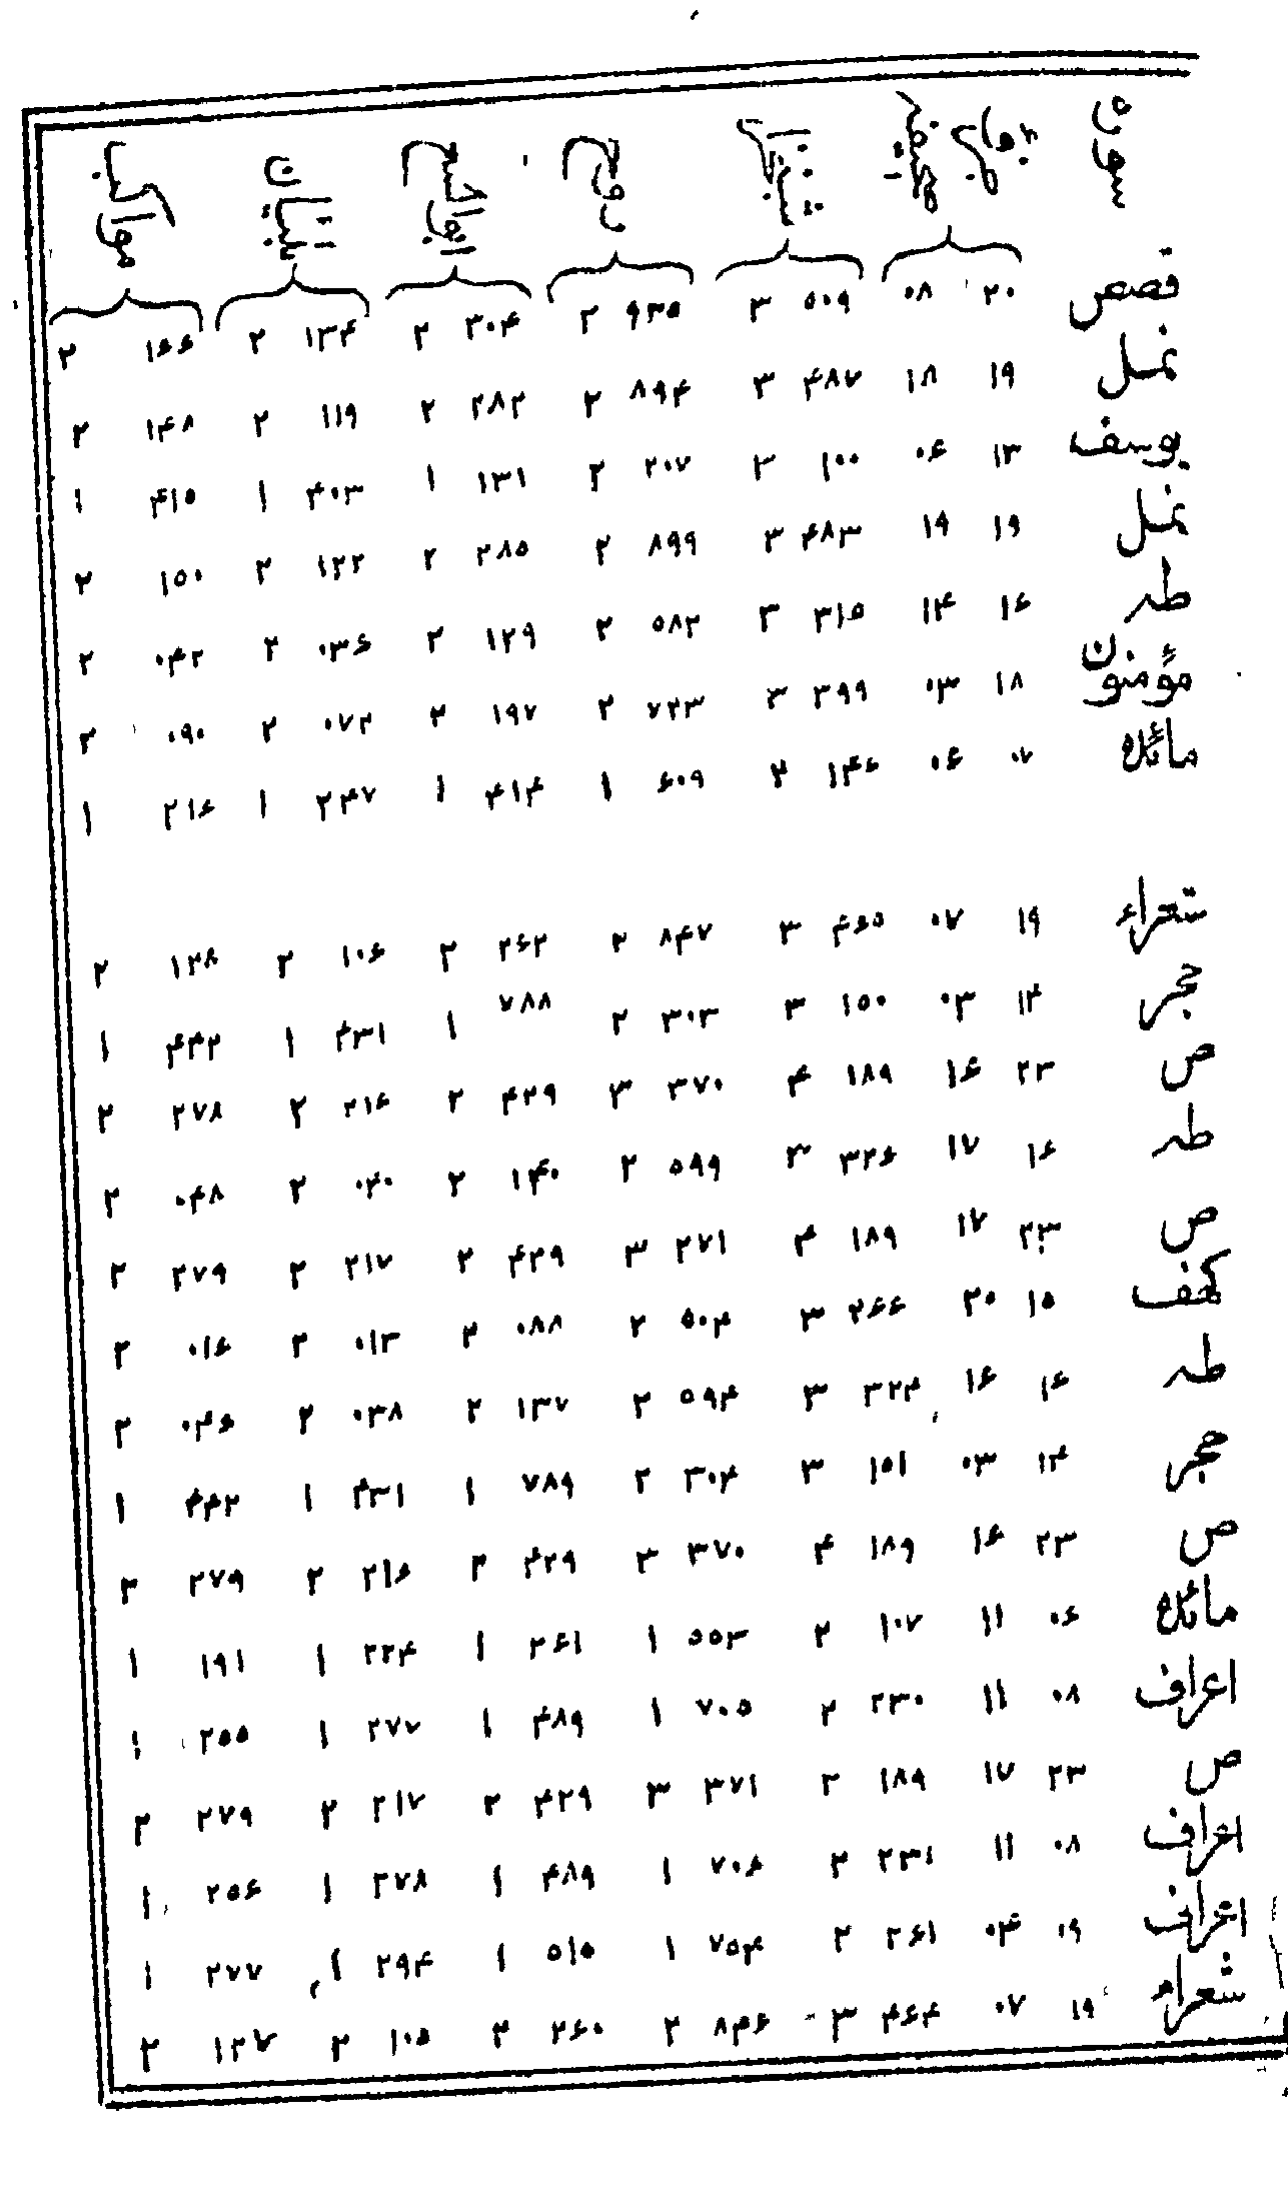 قصص ۲۰ ۰۸ ۵۰۹ ۳ ۹۳۵ ۲ ۳۰۴ ۲ ۱۳۴ ۲ ۱۶۶ ۲
نمل ۱۹ ۱۸ ۴۸۷ ۳ ۸۹۴ ۲ ۲۸۲ ۲ ۱۱۹ ۲ ۱۴۸ ۲
یوسف ۱۳ ۰۶ ۱۰۰ ۳ ۲۰۷ ۲ ۱۳۱ ۱ ۴۰۳ ۱ ۴۱۵ ۱
نمل ۱۹ ۱۹ ۴۸۳ ۳ ۸۹۹ ۲ ۲۸۵ ۲ ۱۲۲ ۲ ۱۵۰ ۲
طہ ۱۶ ۱۴ ۳۱۵ ۳ ۵۸۲ ۲ ۱۲۹ ۲ ۰۳۶ ۲ ۰۴۲ ۲
مؤمنون ۱۸ ۰۳ ۳۹۹ ۳ ۷۲۳ ۲ ۱۹۷ ۲ ۰۷۲ ۲ ۰۹۰ ۲
مائدہ ۰۷ ۰۶ ۱۴۶ ۲ ۶۰۹ ۱ ۴۱۴ ۱ ۲۴۷ ۱ ۲۱۶ ۱
شعراء ۱۹ ۰۷ ۴۶۵ ۳ ۸۴۷ ۲ ۲۶۲ ۲ ۱۰۶ ۲ ۱۲۸ ۲
حجر ۱۴ ۰۳ ۱۵۰ ۳ ۳۰۳ ۲ ۷۸۸ ۱ ۴۳۱ ۱ ۴۴۲ ۱
ص ۲۳ ۱۶ ۱۸۹ ۴ ۳۷۰ ۳ ۴۲۹ ۲ ۲۱۶ ۲ ۲۷۸ ۲
طہ ۱۶ ۱۷ ۳۲۶ ۳ ۵۹۹ ۲ ۱۴۰ ۲ ۰۴۰ ۲ ۰۴۸ ۲
ص ۲۳ ۱۷ ۱۸۹ ۴ ۲۷۱ ۳ ۴۲۹ ۲ ۲۱۷ ۲ ۲۷۹ ۲
کھف ۱۵ ۲۰ ۲۶۶ ۳ ۵۰۴ ۲ ۰۸۸ ۲ ۰۱۳ ۲ ۰۱۶ ۲
طہ ۱۶ ۱۶ ۳۲۴ ۳ ۵۹۴ ۲ ۱۳۷ ۲ ۰۳۸ ۲ ۰۴۶ ۲
حجر ۱۴ ۰۳ ۱۵۱ ۳ ۳۰۴ ۲ ۷۸۹ ۱ ۴۳۱ ۱ ۴۴۲ ۱
ص ۲۳ ۱۶ ۱۸۹ ۴ ۳۷۰ ۳ ۴۲۹ ۲ ۲۱۶ ۲ ۲۷۹ ۲
مائدہ ۰۶ ۱۱ ۱۰۷ ۲ ۵۵۳ ۱ ۲۶۱ ۱ ۲۲۴ ۱ ۱۹۱ ۱
اعراف ۰۸ ۱۱ ۲۳۰ ۲ ۷۰۵ ۱ ۴۸۹ ۱ ۲۷۷ ۱ ۲۵۵ ۱
ص ۲۳ ۱۷ ۱۸۹ ۲ ۳۷۱ ۳ ۴۲۹ ۲ ۲۱۷ ۲ ۲۷۹ ۲
اعراف ۰۸ ۱۱ ۲۳۱ ۲ ۷۰۶ ۱ ۴۸۹ ۱ ۲۷۸ ۱ ۲۵۶ ۱
اعراف ۰۹ ۰۴ ۲۶۱ ۲ ۷۵۴ ۱ ۵۱۵ ۱ ۲۹۴ ۱ ۲۷۷ ۱
شعراء ۱۹ ۰۷ ۴۶۴ ۳ ۸۴۶ ۲ ۲۶۰ ۲ ۱۰۵ ۲ ۱۲۷ ۲